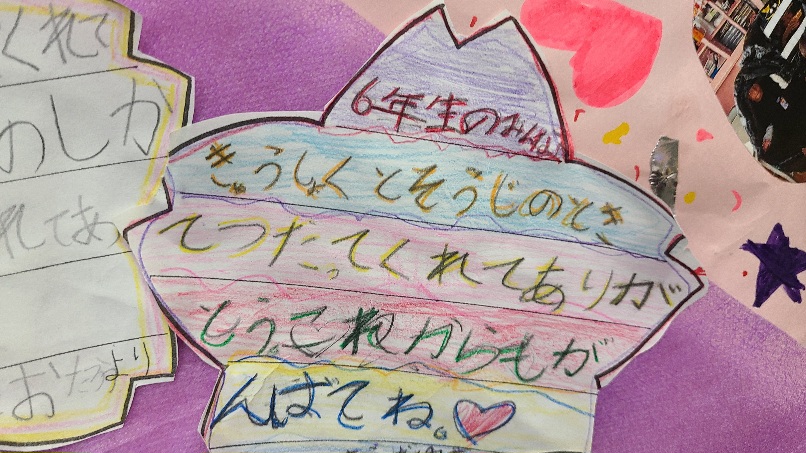 くれて
のしか
れてあ
おたより
6年生のみんな
きゅうしょくとそうじのとき
てつだってくれてありが
とう。これからもが
んばてね。